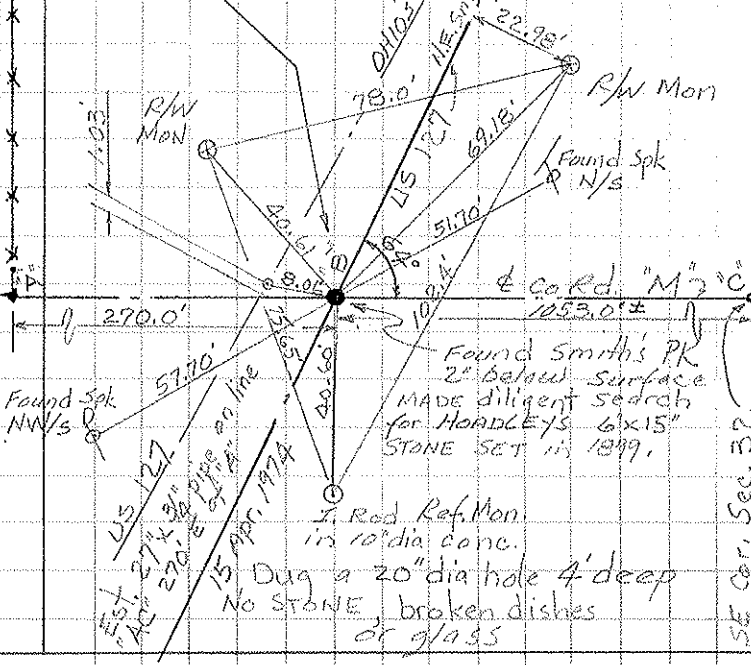 22.98'
R/W Mon
R/W
MON
78.0'
69.18'
US 127
Found Spk
N/S
51.70'
1.03'
40.61'
"B"
64°
8.05'
102.4'
"A"
℄ Co Rd. "M" "C"
270.0'
1053.0'±
75.65'
40.60'
57.70'
Found Spk
NW/S
Found Smith's PK
2" below Surface
MADE diligent search
for HOADLEYS 6"x15"
STONE SET in 1899.
US 127
Est. 27" x 3/4" pipe on line
"AC" 270' E of "A"
15 Apr. 1974
I. Rod Ref. Mon.
in 10" dia conc.
Dug a 20" dia hole 4' deep
NO STONE broken dishes
or glass
SE Cor. Sec 32